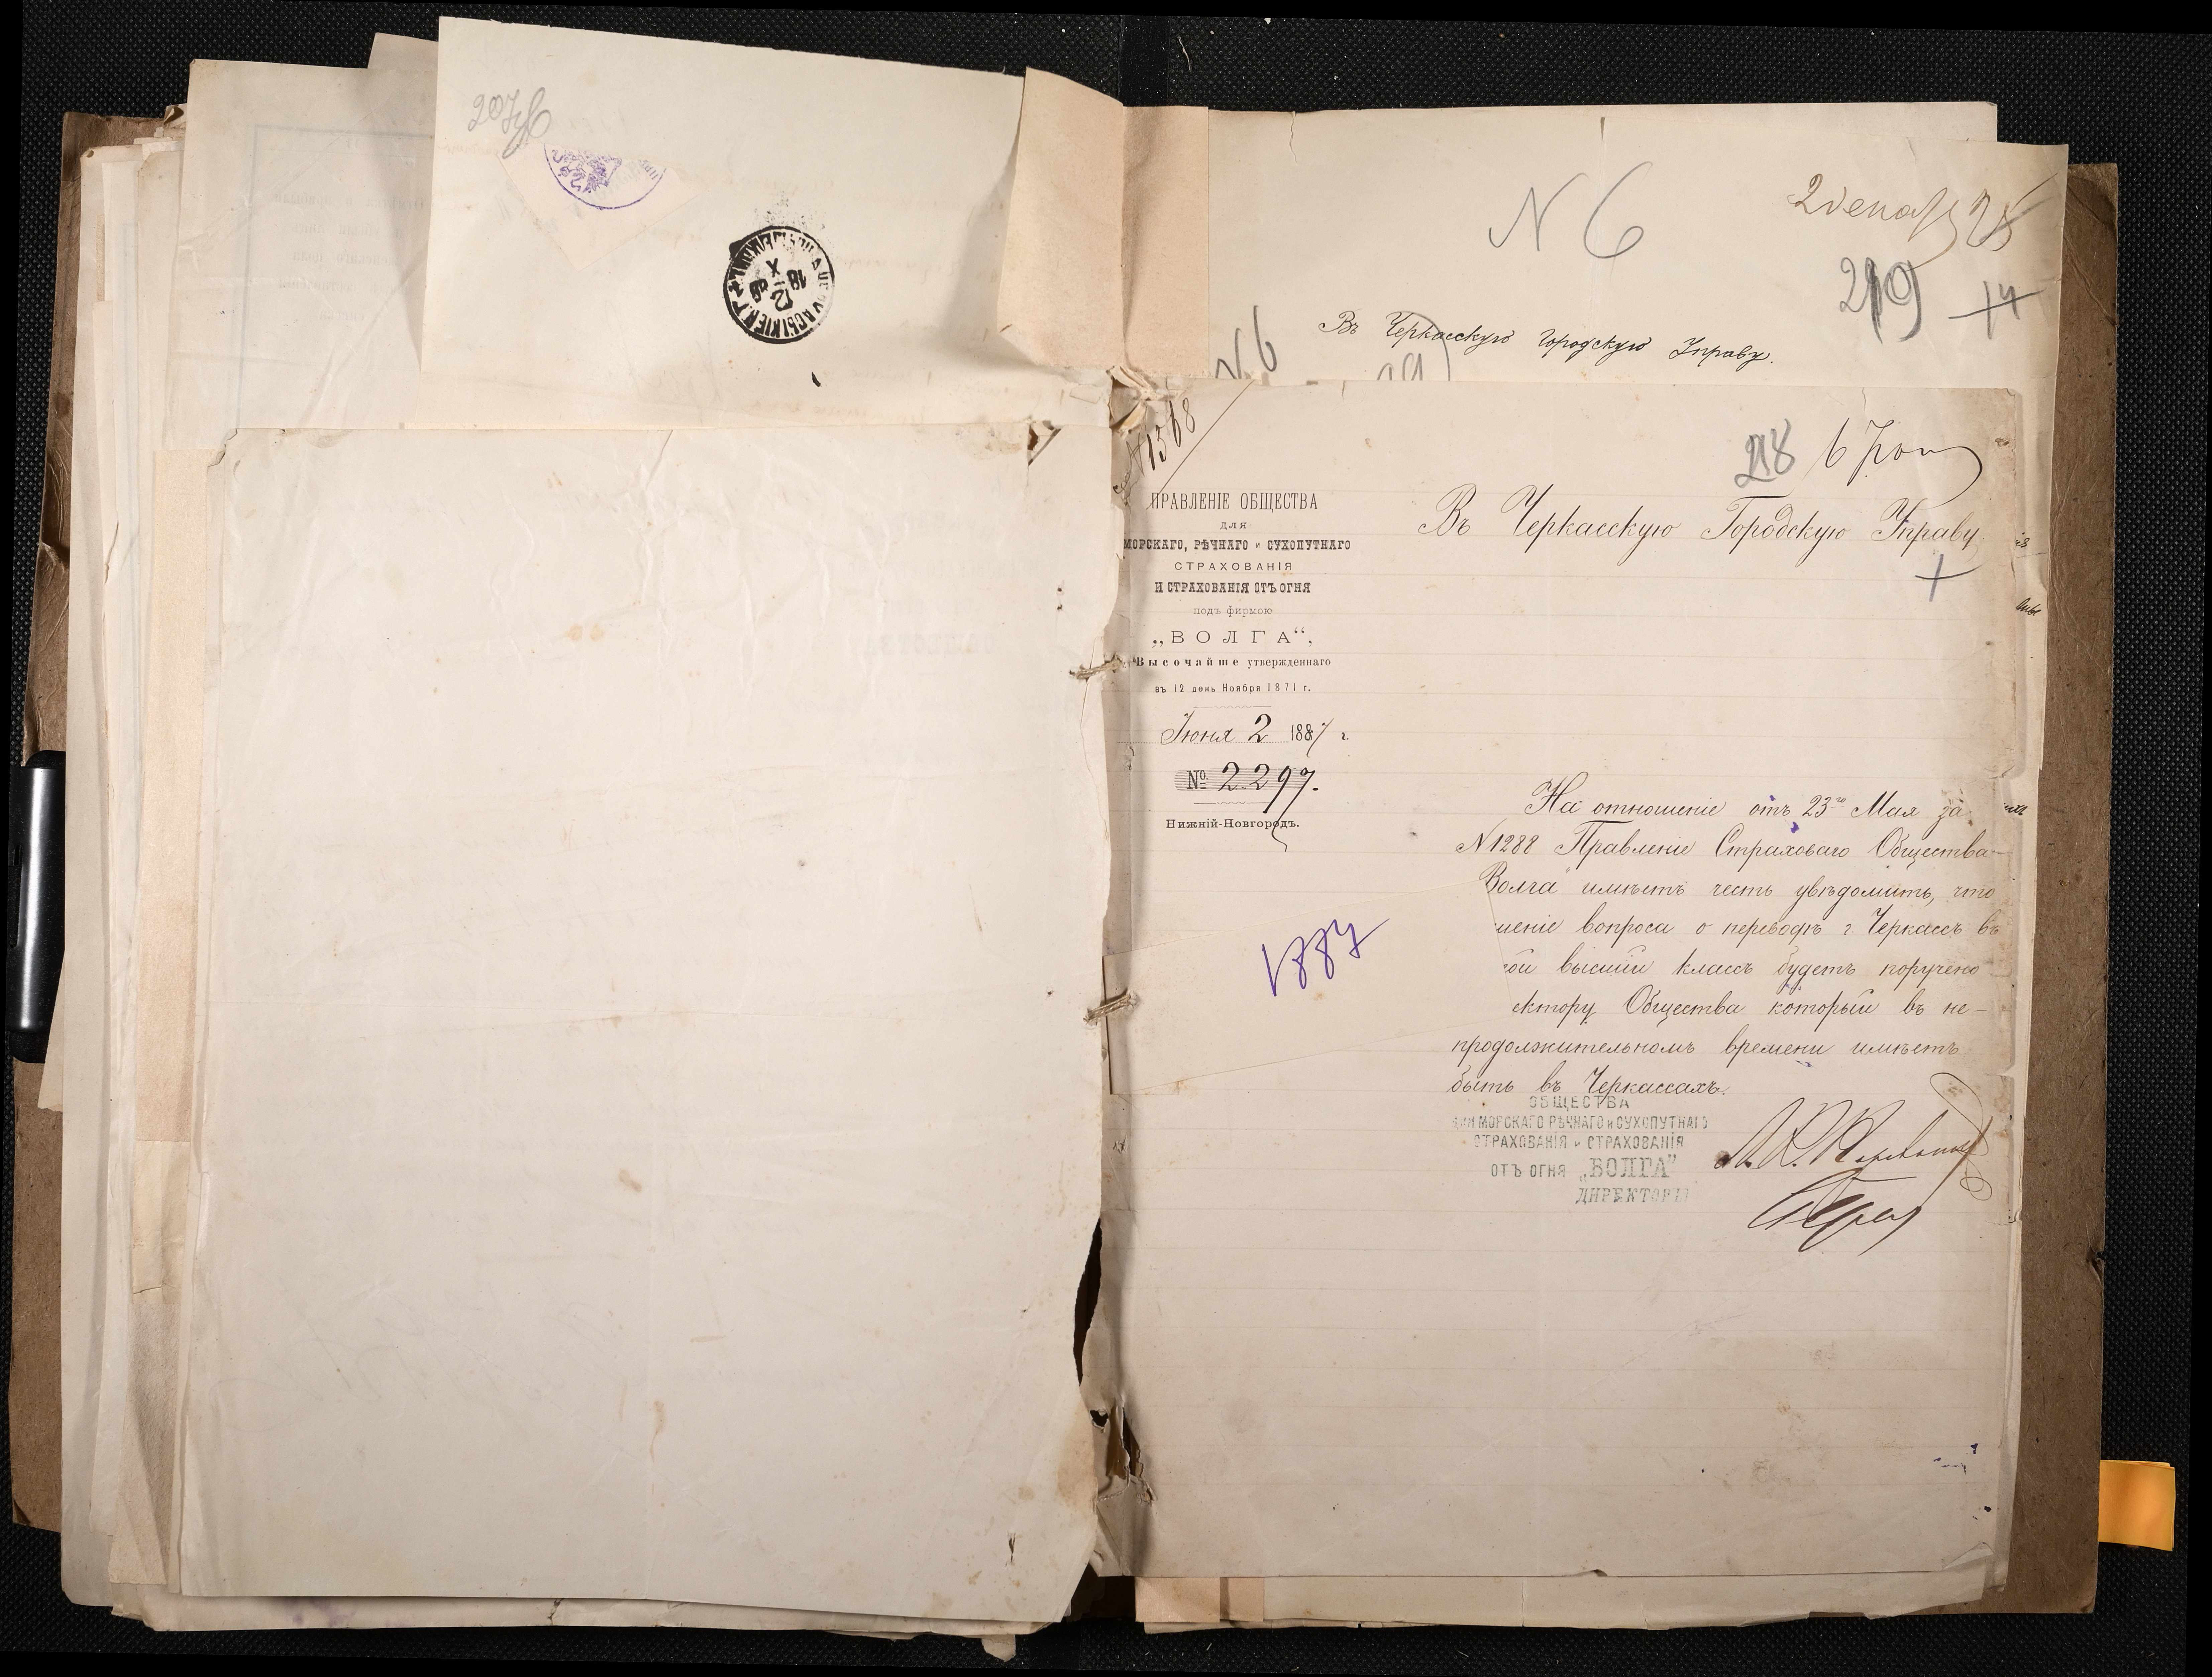 N 6
219
Въ Черкасскую городскую Управу.
N. 6
N 1368
218
ПРАВЛЕНІЕ ОБЩЕСТВА
для
МОРСКАГО, РѢЧНАГО и СУХОПУТНАГО
СТРАХОВАНІЯ
И СТРАХОВАНІЯ ОТЪ ОГНЯ
подъ фирмою
„ВОЛГА“,
Высочайше утвержденнаго
въ 12 день Ноября 1871 г.
Іюня 2 1887 г.
№ 2297.
Нижній-Новгородъ.
1887
Въ Черкасскую Городскую Управу
На отношеніе отъ 23го Мая за
N 1288 Правленіе Страховаго Общества
Волга имѣетъ честь увѣдомить, что
шеніе вопроса о переводѣ г. Черкассъ въ
ой высшій классъ будетъ поручено
ектору Общества который въ не-
продолжительномъ времени имѣетъ
быть въ Черкассахъ.
ОБЩЕСТВА
ДЛЯ МОРСКАГО РѢЧНАГО и СУХОПУТНАГО
СТРАХОВАНІЯ и СТРАХОВАНІЯ
ОТЪ ОГНЯ „ВОЛГА“
ДИРЕКТОРЫ